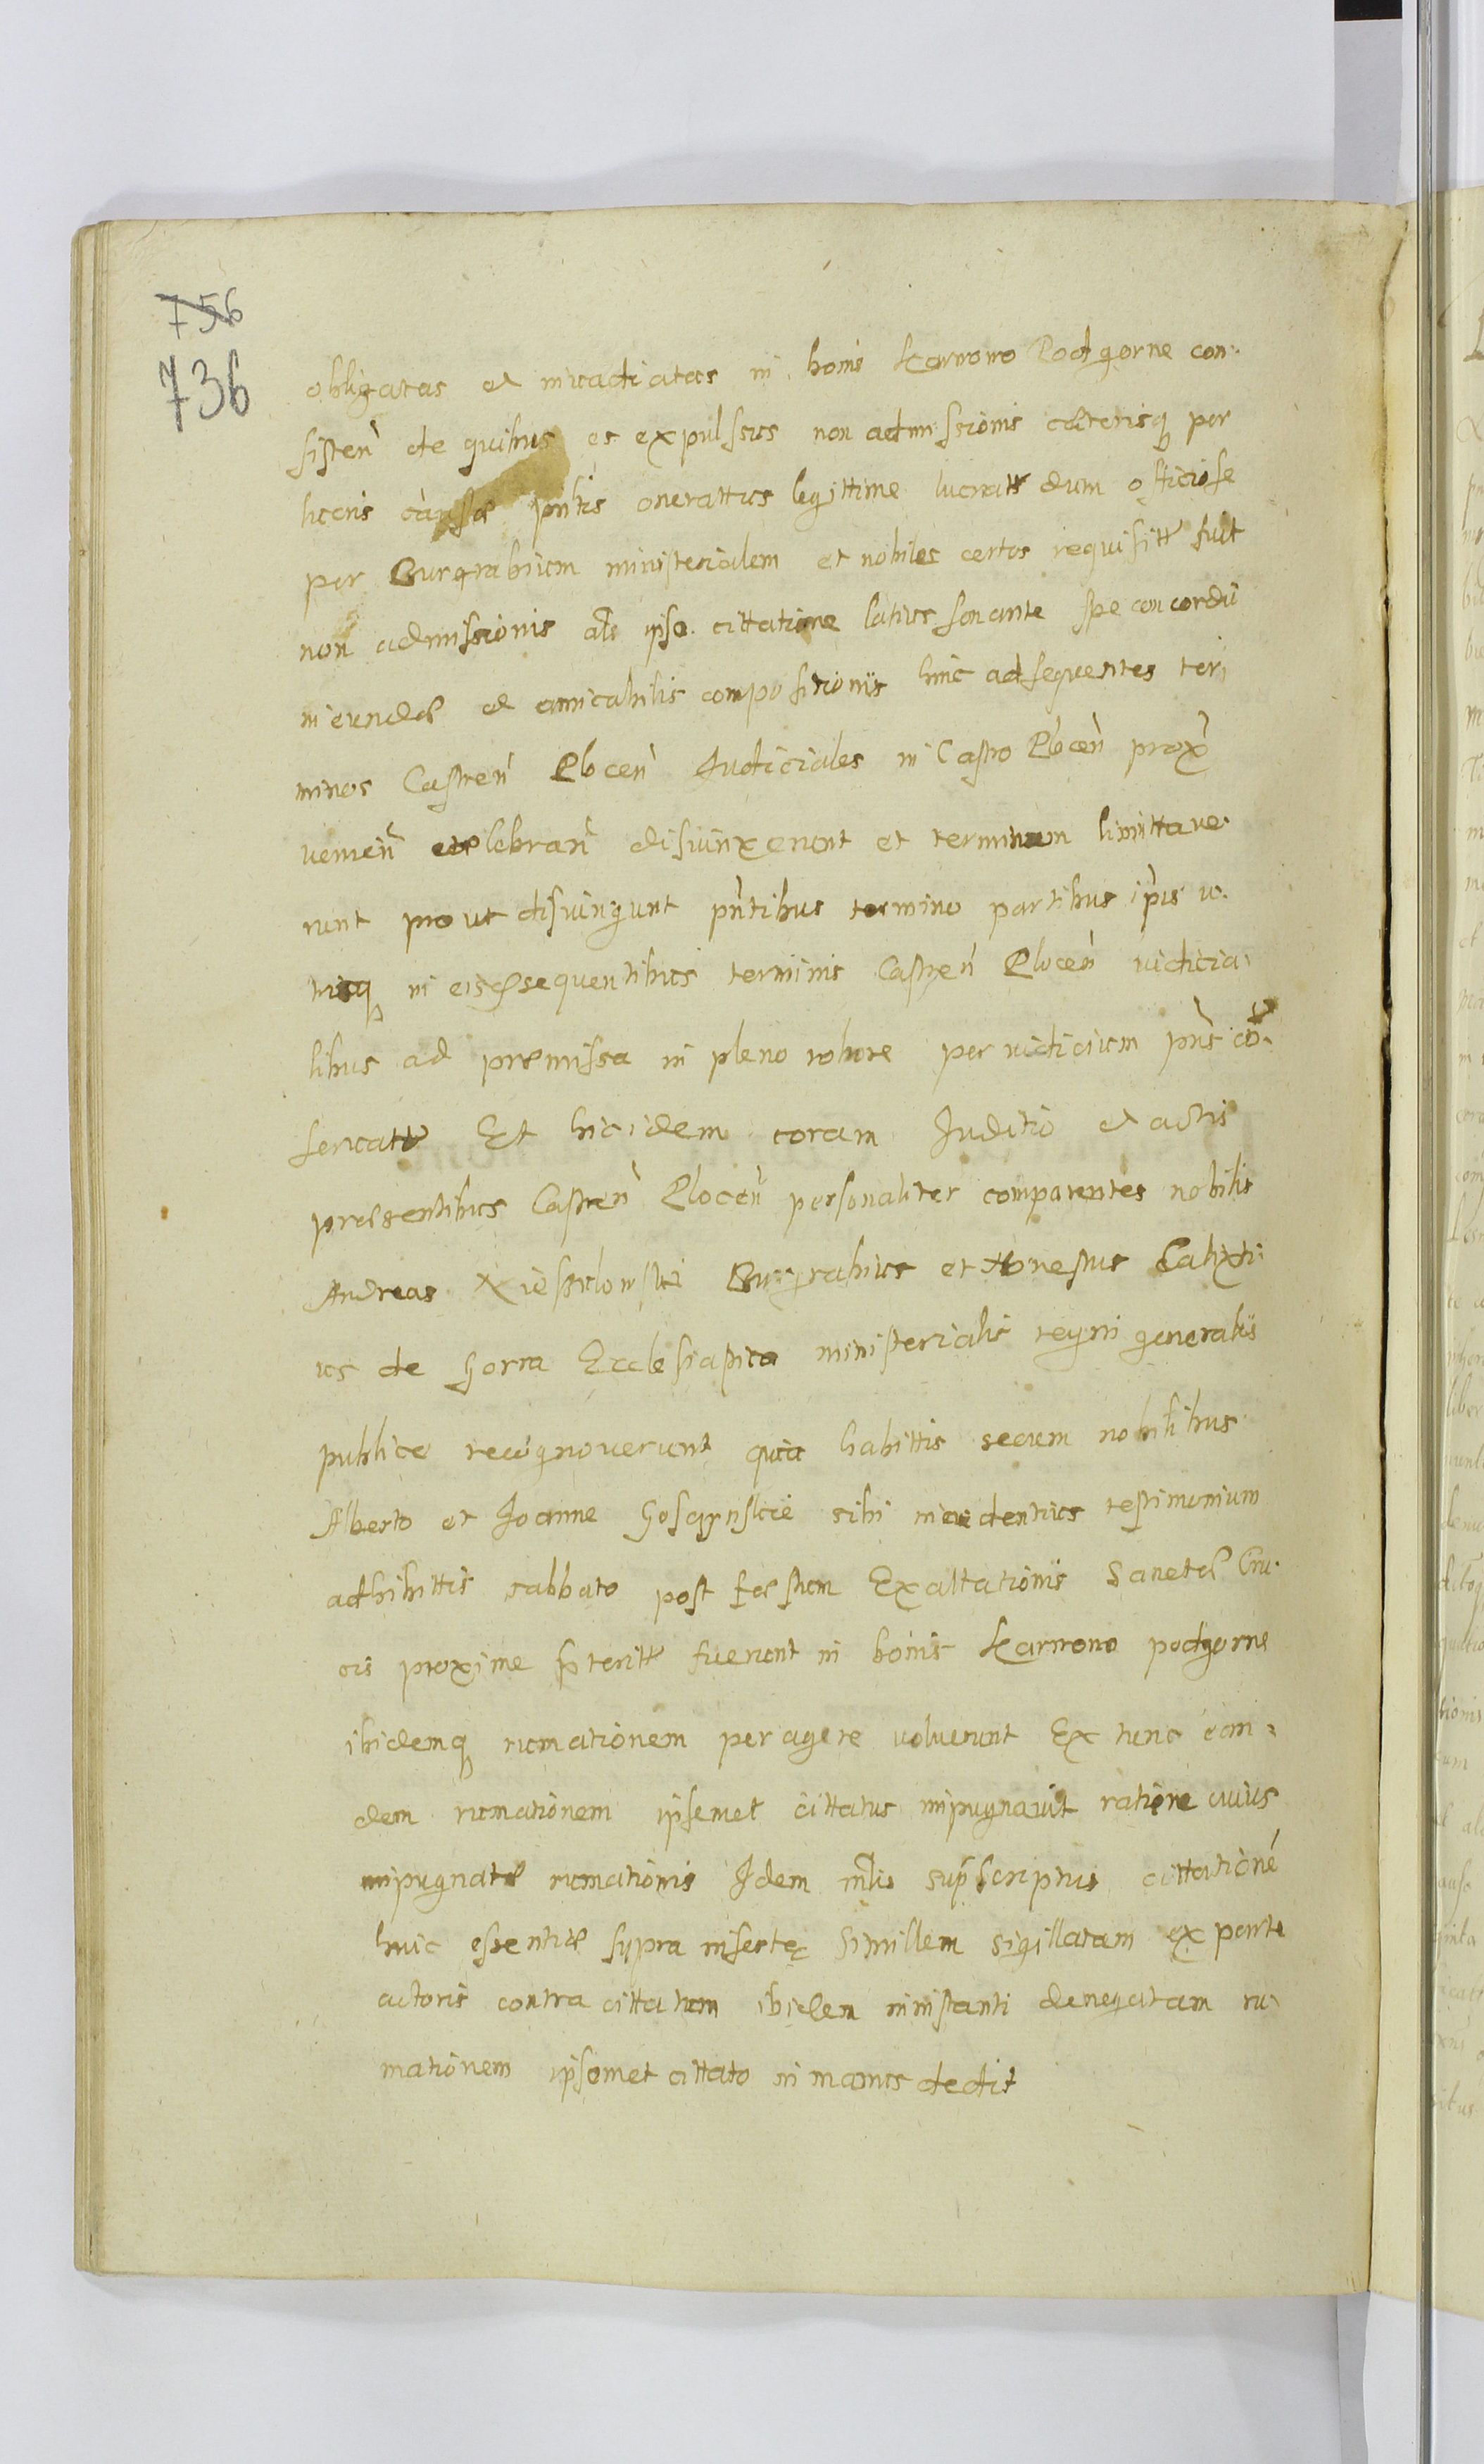 756
736
obligatas et invadiatas in bonis Karwowo Podgorne con-
sisten de quibus es expulsus non admissionis caeterisq per
lucris causae pntis onerattus legittime lucratt dum officiose
per Burgrabium ministerialem et nobiles certos requisitt fuit
non admissionis als ipsa cittatione latius sonante spe concordiae
ineundae et amicabilis compositionis hinc ad sequentes ter
minos Castren Plocen Judiciales in Castro Plocen prox
venien celebran disiunxerunt et terminum limittave-
runt prout disiungunt pntibus termino partibus ipsis u-
trisq in eisd sequentibus terminis Castren Plocen iudicia-
libus ad praemissa in pleno robore per iudicium pns co-
servatt Et hic idem coram Juditio et actis
praesentibus Castren Plocen personaliter comparentes nobilis
Andreas Burgrabius et Honestus Calixt-
us de Gorra Ecclesiastica ministerialis regni generalis
publice recognoverunt quia habittis secum nobilibus
Alberto et Joanne Goscynskie sibi in evidentius testimonium
adhibittis sabbato post festum Exaltationis Sanctae Cru-
cis proxime pteritt fuerunt in bonis Karwowo podgorne
ibidemq rumationem peragere voluerunt Ex tunc ean-
dem rumationem ipsemet cittatus impugnavit ratione cuius
impugnatae rumationis Idem mlis supscriptus cittatione
huic essentiae supra insertę simillem sigillatam ex parte
actoris contra cittatum ibidem in instanti denegatam ru-
mationem ipsomet cittato in manus dedit